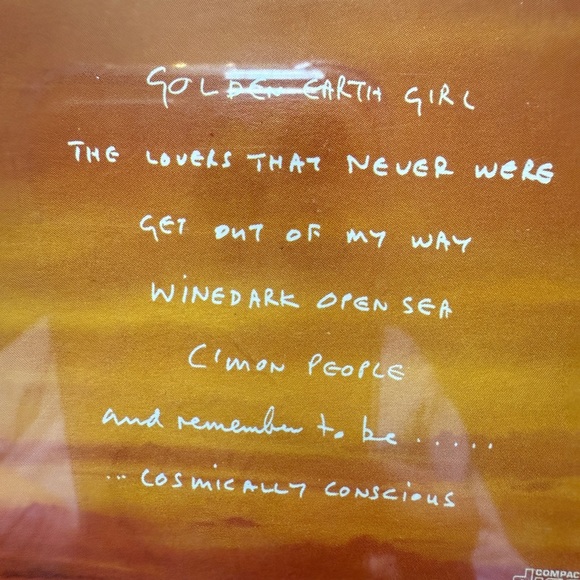 GOLDEN EARTH GIRL
THE LOVERS THAT NEVER WERE
GET OUT OF MY WAY
WINEDARK OPEN SEA
C'MON PEOPLE
and remember to be .....
... COSMICALLY CONSCIOUS
COMPAC